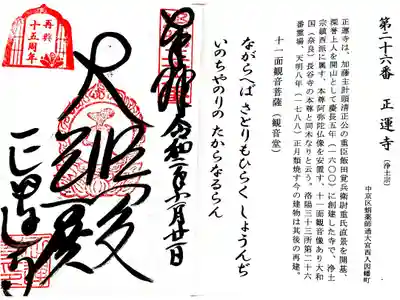 第二十六番 正運寺（浄土宗）
中京区蛸薬師通大宮西入因幡町
正運寺は、加藤主計頭清正公の重臣飯田覚兵衛尉重氏直景を開基、
深誉上人を開山として慶長五年（一六〇〇）に創建した寺で、浄土
宗鎮西派に属す。本尊阿弥陀仏像を安置す。十一面観音像あり大和
国（奈良）長谷寺の本尊と同木なりと云う。洛陽三十三所第二十六
番霊場、天明八年（一七八八）正月類焼す今の建物は其後の再建。
十一面観音菩薩（観音堂）
ながらへば さとりもひらく しょうんぢ
いのちやのりの たからなるらん
奉拝 令和二年六月廿一日
大悲殿
正運寺
再興
十五周年